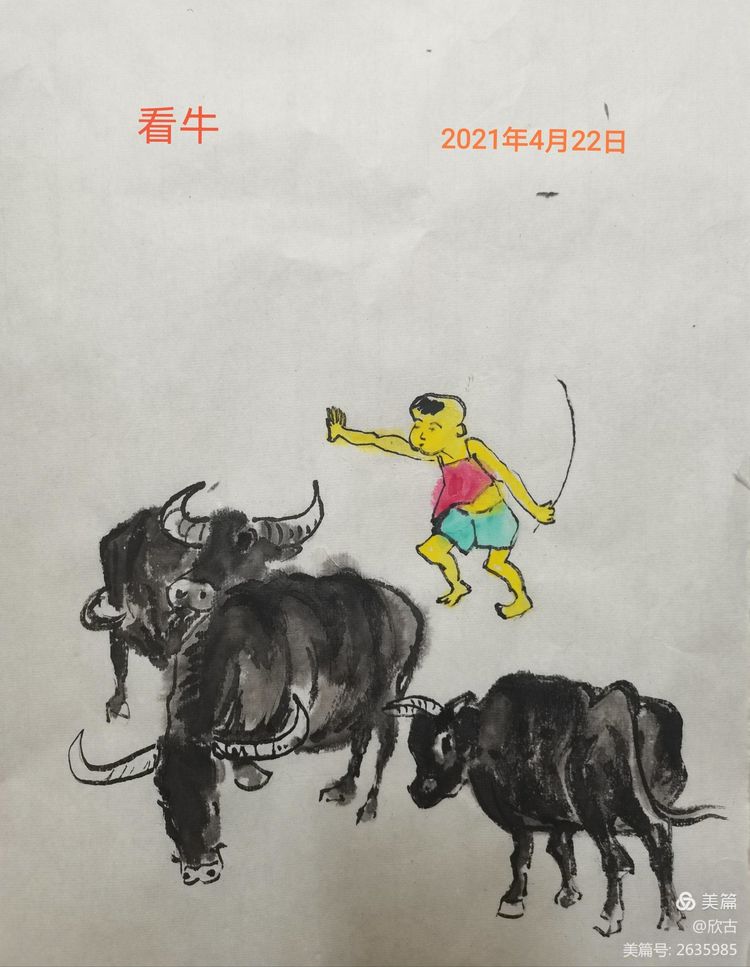 看牛
2021年4月22日
美篇
@欣古
美篇号: 2635985